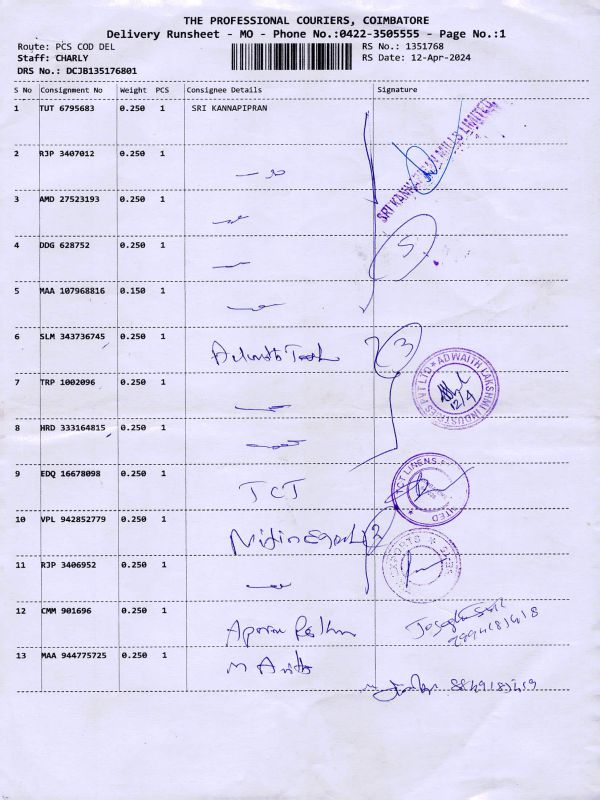 THE PROFESSIONAL COURIERS, COIMBATORE
Delivery Runsheet - MO - Phone No.:0422-3505555 - Page No.:1
Route: PCS COD DEL
RS No.: 1351768
Staff: CHARLY
RS Date: 12-Apr-2024
DRS No.: DCJB135176801
S No Consignment No Weight PCS Consignee Details Signature
1 TUT 6795683 0.250 1 SRI KANNAPIPRAN
2 RJP 3407012 0.250 1
SRI KANNAPIRAN MILLS LIMITED
3 AMD 27523193 0.250 1
4 DDG 628752 0.250 1
5
5 MAA 107968816 0.150 1
6 SLM 343736745 0.250 1
3
ADWAITH LAKSHMI INDUSTRIES PVT LTD
12/4
7 TRP 1002096 0.250 1
8 HRD 333164815 0.250 1
9 EDQ 16678098 0.250 1 TCT
10 VPL 942852779 0.250 1 2
11 RJP 3406952 0.250 1
12 CMM 901696 0.250 1
13 MAA 944775725 0.250 1